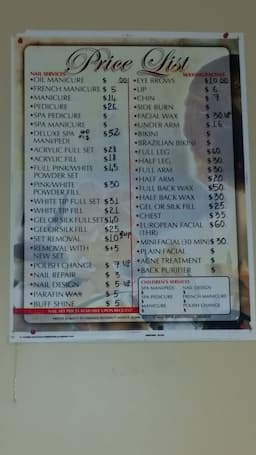 Price List
NAIL SERVICES
•OIL MANICURE $ .00
•FRENCH MANICURE $ 5
•MANICURE $14
•PEDICURE $26
•SPA PEDICURE $
•SPA MANICURE $
•DELUXE SPA $52
MANI/PEDI
•ACRYLIC FULL SET $28
•ACRYLIC FILL $18
•FULL PINK/WHITE $45
POWDER SET
•PINK/WHITE $30
POWDER FILL
•WHITE TIP FULL SET $31
•WHITE TIP FILL $21
•GEL OR SILK FULL SET $40
•GEL OR SILK FILL $25
•SET REMOVAL $10
•REMOVAL WITH $+5
NEW SET
•POLISH CHANGE $ 7 up
•NAIL REPAIR $ 3
•NAIL DESIGN $ 5 up
•PARAFIN WAX $ 5
•BUFF SHINE $ 5
WAXING/FACIALS
•EYE BROWS $10.00
•LIP $ 6
•CHIN $ 7
•SIDE BURN $
•FACIAL WAX $ 30 up
•UNDER ARM $ 16
•BIKINI $
•BRAZILIAN BIKINI $
•FULL LEG $60
•HALF LEG $30
•FULL ARM $30
•HALF ARM $20
•FULL BACK WAX $50
•HALF BACK WAX $30
•GEL OR SILK FILL $25
•CHEST $35
•EUROPEAN FACIAL $60
(1HR)
•MINI FACIAL (30 MIN) $ 30
•PLAIN FACIAL $
•ACNE TREATMENT $
•BACK PURIFIER $
CHILDREN'S SERVICES
SPA MANI/PEDI NAIL DESIGN
$ $
SPA PEDICURE FRENCH MANICURE
$ $
MANICURE POLISH CHANGE
$ $